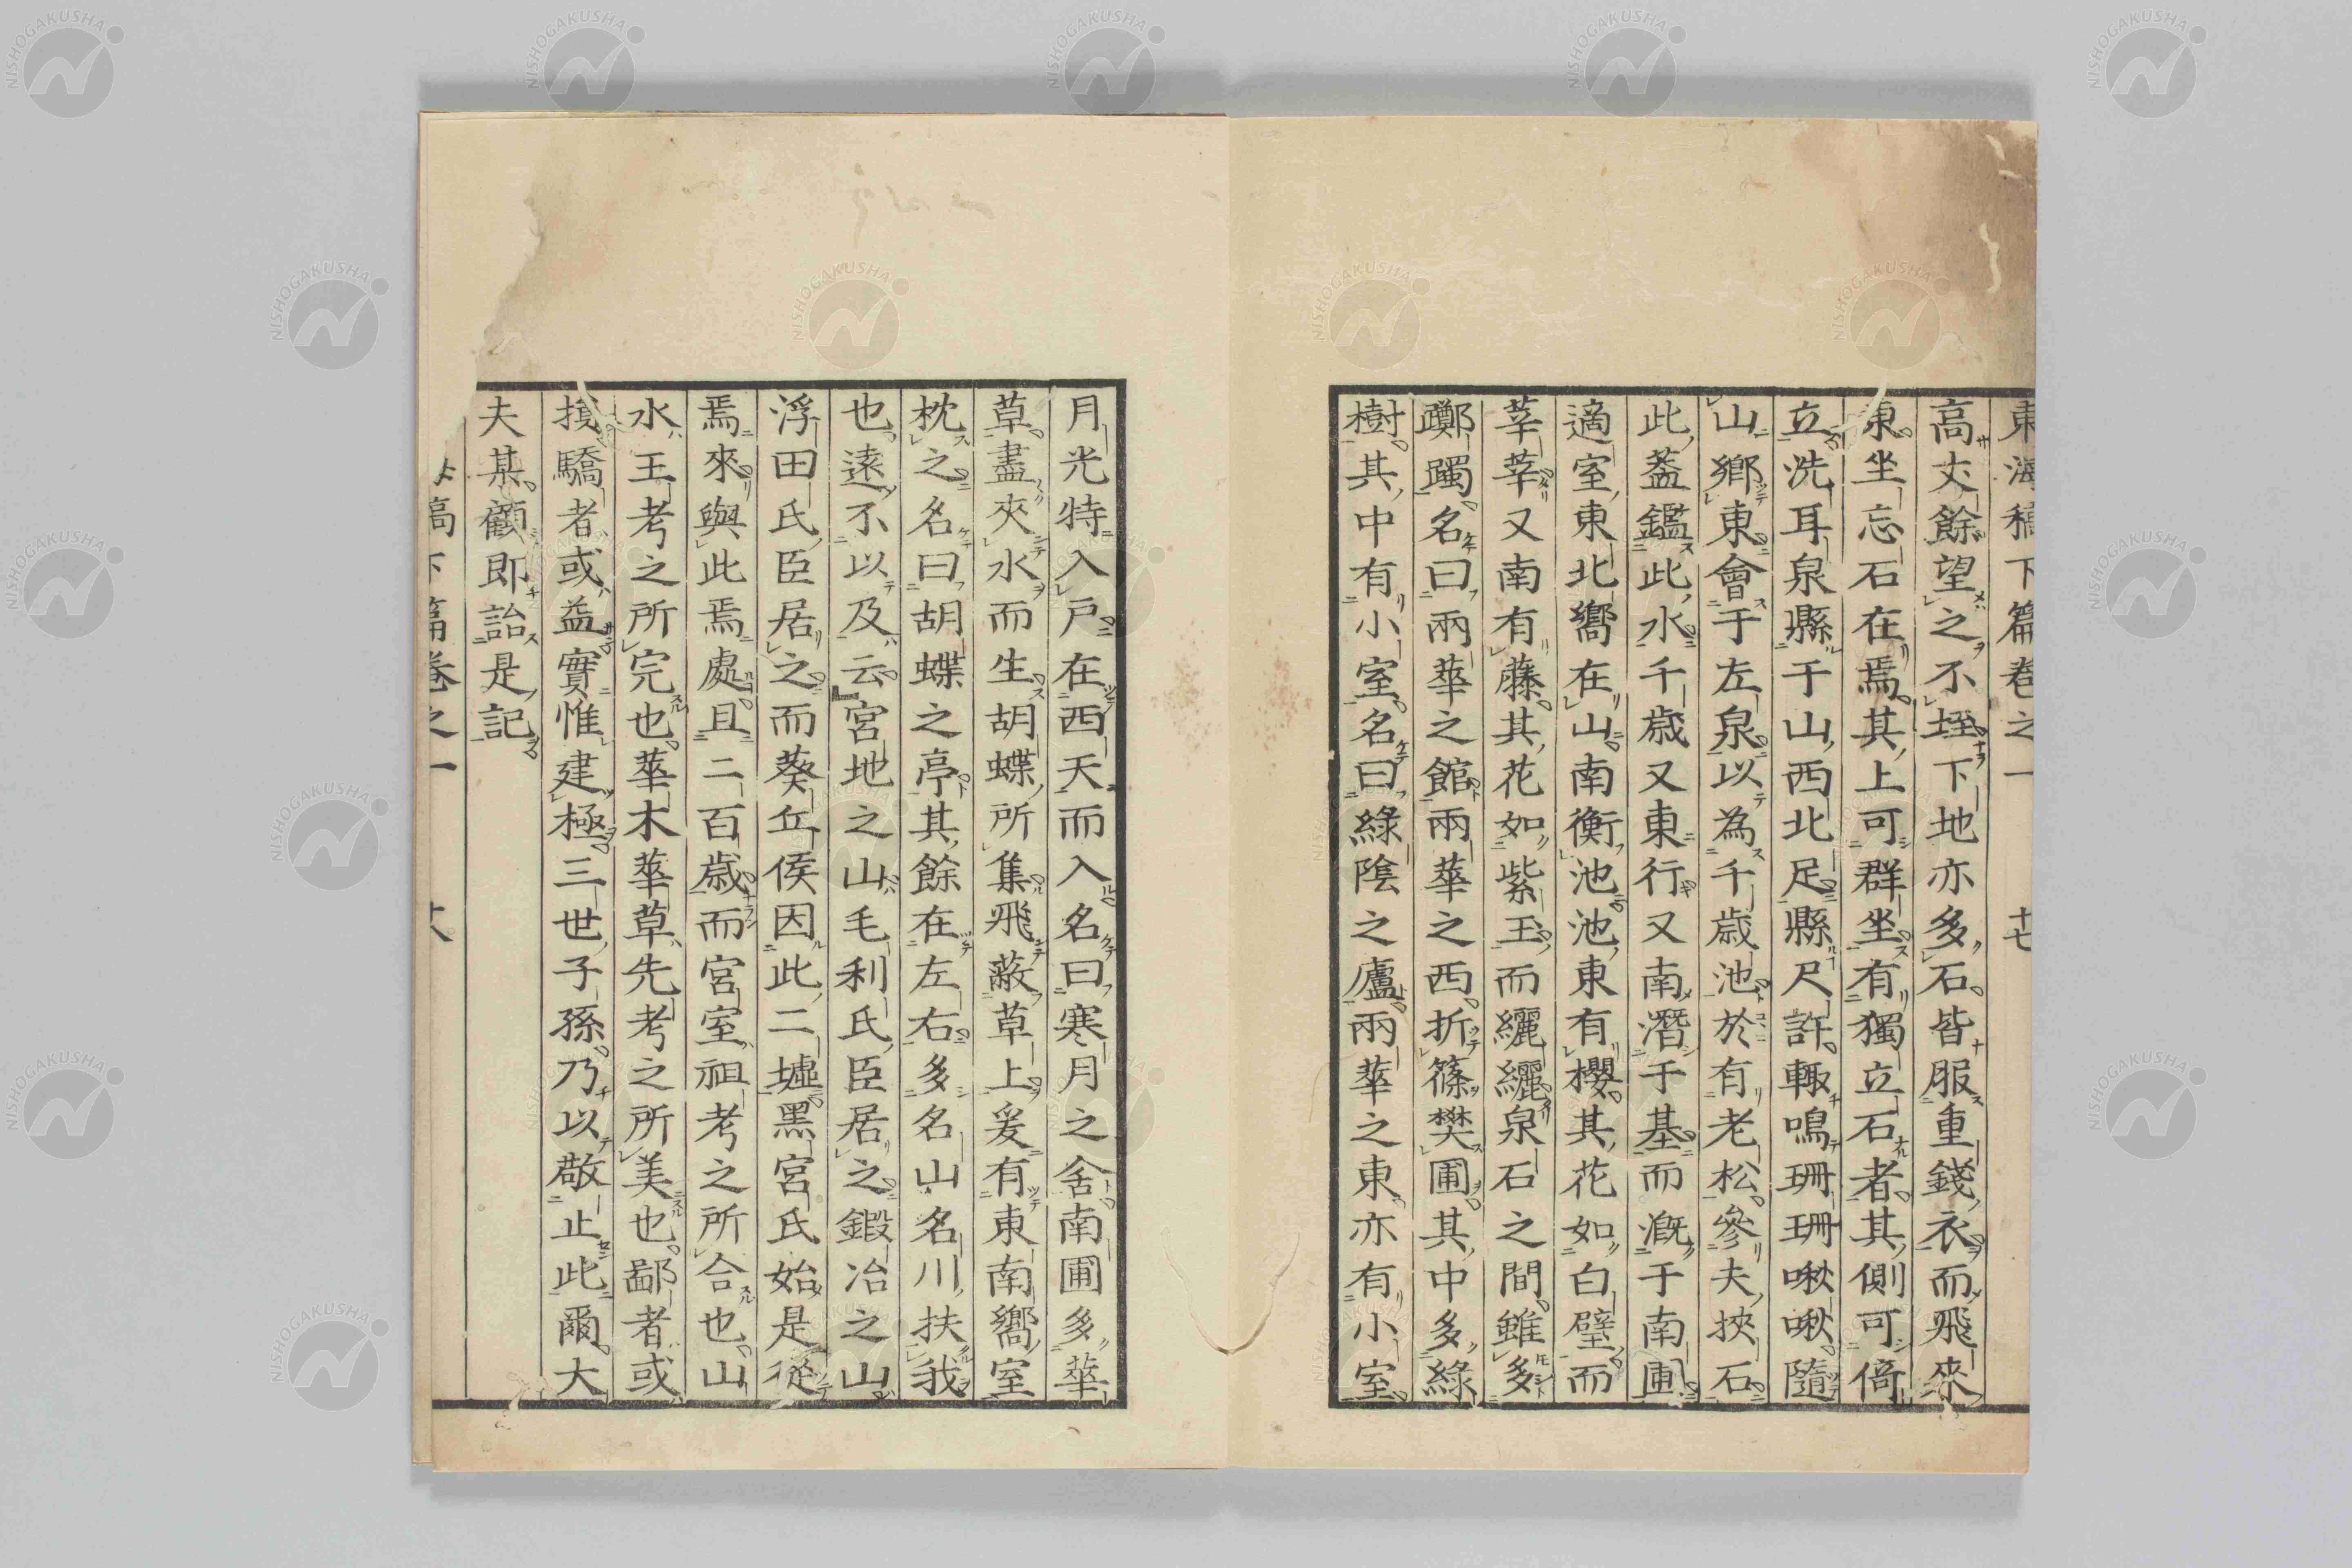 東海稿下篇卷之一　十七
高丈餘望之不垤下地亦多石皆服重錢衣而飛來
東坐忘石在焉其上可群坐有獨立石者其側可倚
立洗耳泉縣于山西北足縣尺許輙鳴珊珊啾啾隨
山鄉東會于左泉以為千歳池於有老松參夫挾石
此葢鑑此水千歳又東行又南潛于基而漑于南圃
適室東北嚮在山南衡池池東有櫻其花如白璧而
莘莘又南有藤其花如紫玉而纚纚泉石之間雖多
躑躅名曰兩華之館兩華之西折篠樊圃其中多綠
樹其中有小室名曰綠陰之廬兩華之東亦有小室
月光特入戸在西天而入名曰寒月之舍南圃多華
草盡夾水而生胡蝶所集飛蔽草上爰有東南嚮室
枕之名曰胡蝶之亭其餘在左右多名山名川扶我
也遠不以及云宮地之山毛利氏臣居之鍛冶之山
浮田氏臣居之而葵丘侯因此二墟黑宮氏始是從
焉來與此焉處且二百歳而宮室祖考之所合也山
水王考之所完也華木華草先考之所美也鄙者或
携驕者或益實惟建極三世子孫乃以敬止此爾大
夫某顧即詒是記
稿下篇卷之一